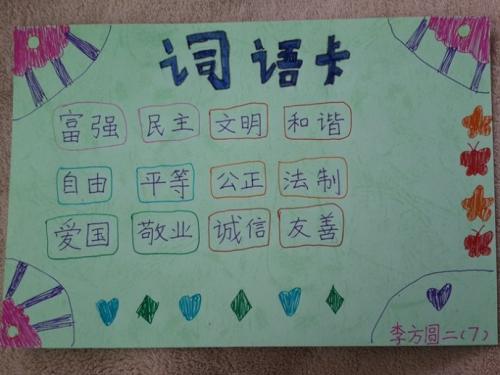 词语卡
富强 民主 文明 和谐
自由 平等 公正 法制
爱国 敬业 诚信 友善
李方圆二(7)